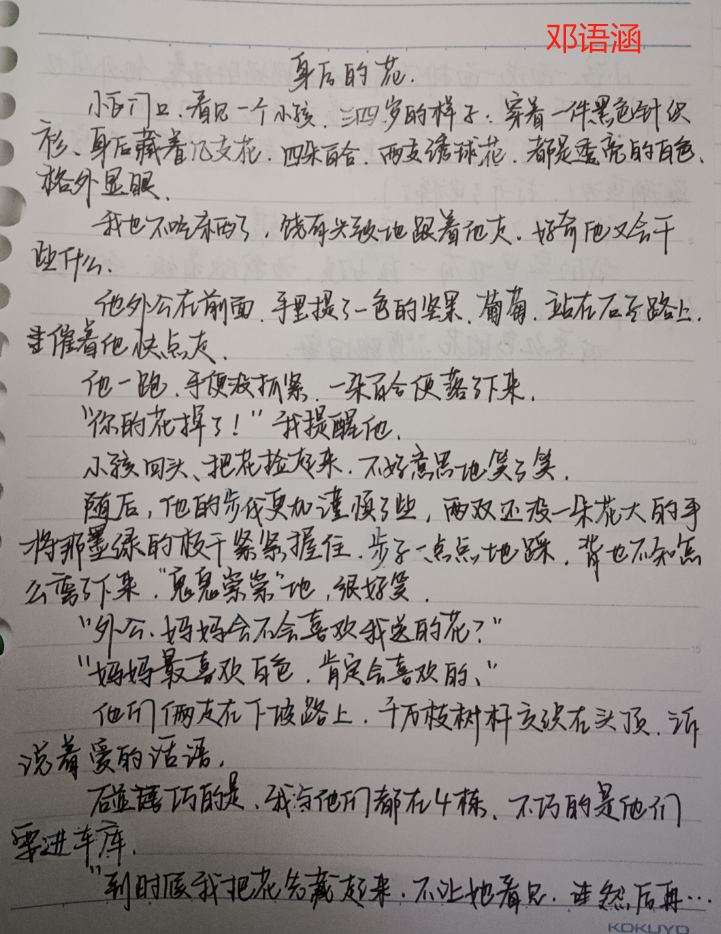 邓语涵
身后的花.
小区门口.看见一个小孩.三四岁的样子.穿着一件黑色针织
衫、身后藏着几支花.四朵百合.两支绣球花.都是透亮的白色、
格外显眼.
我也不吃东西了,饶有兴致地跟着他走.好奇他又会干
些什么.
他外公在前面.手里提了一包的坚果、葡萄.站在石子路上.
催着他快点走.
他一跑.手便没抓紧.一朵百合便落了下来.
"你的花掉了!"我提醒他.
小孩回头、把花捡起来.不好意思地笑了笑.
随后,他的步伐更加谨慎了些,两双还没一朵花大的手
将那墨绿的枝干紧紧握住.步子一点点地踩.背也不知怎
么弯了下来."鬼鬼祟祟"地,很好笑.
"外公.妈妈会不会喜欢我送的花?"
"妈妈最喜欢白色.肯定会喜欢的、"
他们俩走在下坡路上.千万枝树杆交织在头顶.诉
说着爱的话语.
碰巧的是、我与他们都在4栋.不巧的是他们
要进车库.
"到时候我把花先藏起来.不让她看见.然后再…
KOKUYO